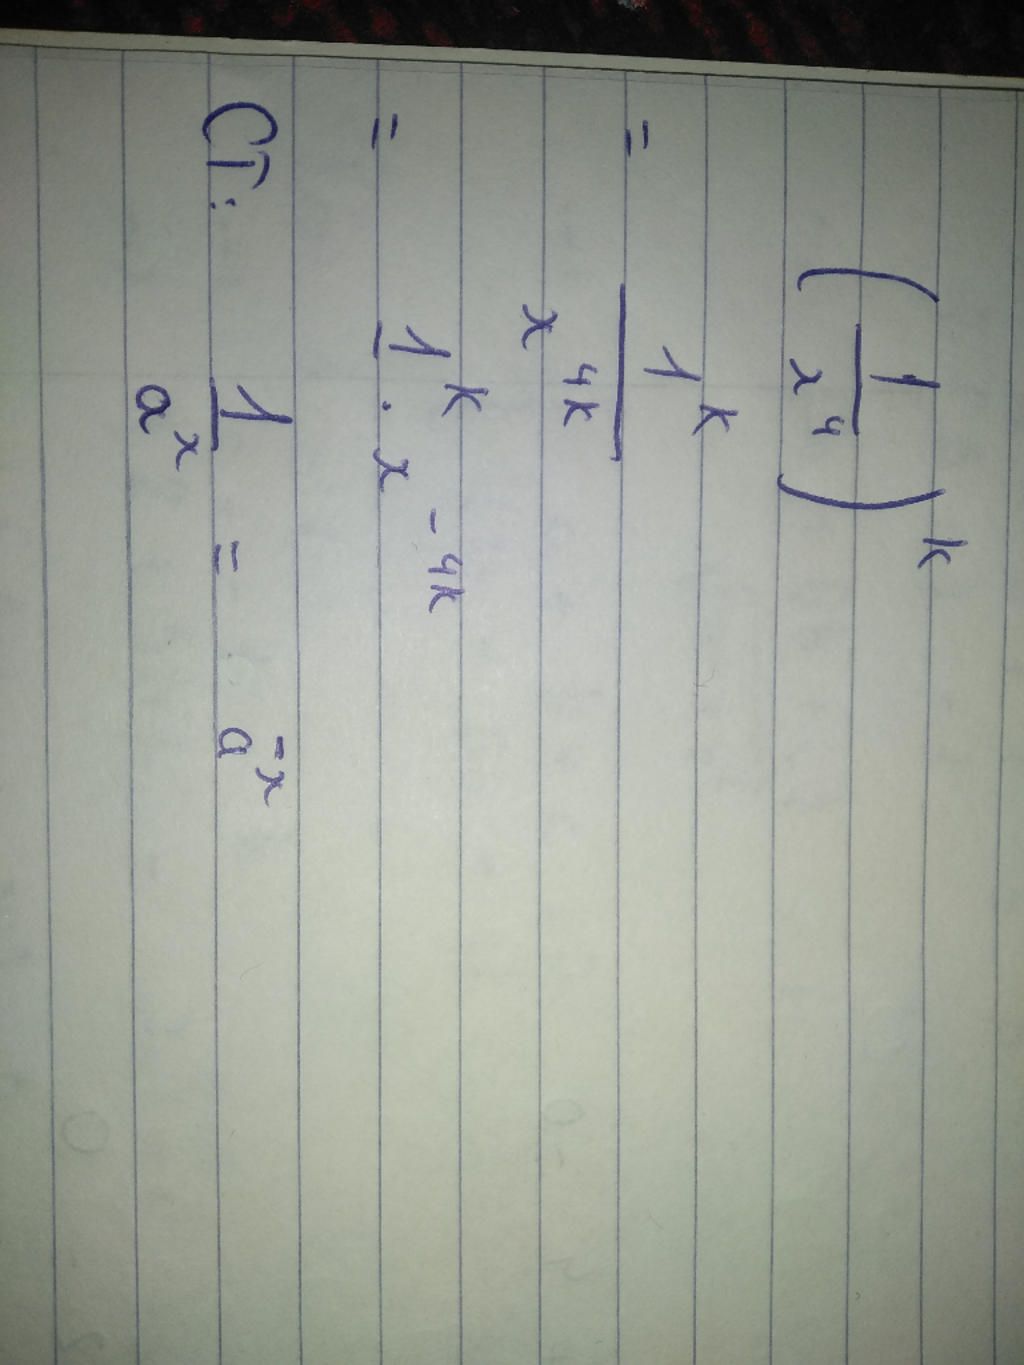 (1/x⁴)ᵏ
= 1ᵏ/x⁴ᵏ
= 1ᵏ . x⁻⁴ᵏ
CT: 1/aˣ = a⁻ˣ